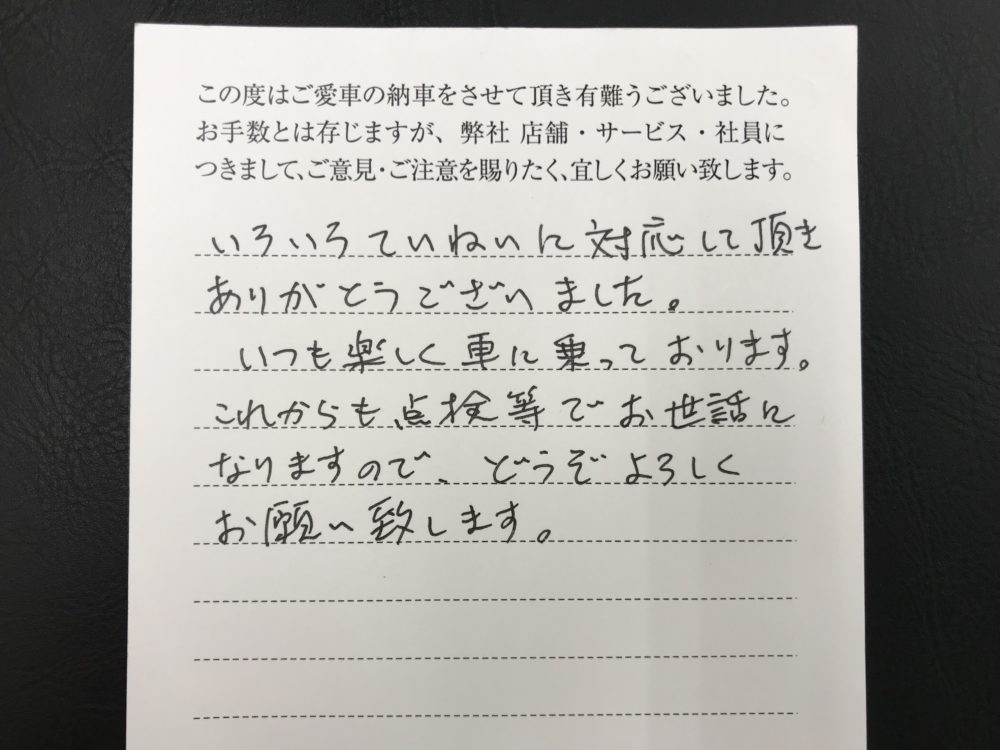 この度はご愛車の納車をさせて頂き有難うございました。
お手数とは存じますが、弊社 店舗・サービス・社員に
つきまして、ご意見・ご注意を賜りたく、宜しくお願い致します。
いろいろていねいに対応して頂き
ありがとうございました。
いつも楽しく車に乗っております。
これからも点検等でお世話に
なりますので、どうぞよろしく
お願い致します。